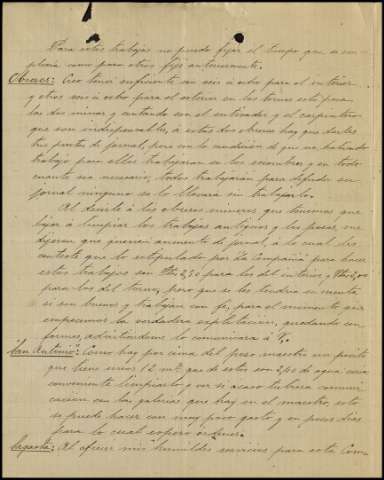 Para estos trabajos no puedo fijar el tiempo que se em-
plearía como para otros fijé anteriormente.
Obreros: Creo tener suficiente con seis ú ocho para el interior
y otros seis ú ocho para el exterior en los tornos esto para
las dos minas y contando con el entivador y el carpintero
que son indispensables, á estos dos obreros hay que darles
tres pesetas de jornal, pero con la condición de que no habiendo
trabajo para ellos trabajarán en los escombros y en todo
cuanto sea necesario, todos trabajarán para defender su
jornal ninguno se lo llevará sin trabajarlo.
Al decirle á los obreros mineros que tenemos que
bajar á limpiar los trabajos antiguos y los pozos, me
dijeron que querían aumento de jornal, á lo cual les
contesté que lo estipulado por la Compañía para hacer
estos trabajos son Ptas 2,50 para los del interior, y Ptas 2,00
para los del torno, pero que se les tendría en cuenta
si son buenos y trabajan con fé, para el momento que
empecemos la verdadera explotación, quedando con-
formes, advirtiéndome lo comunicara á
"San Antonio": Como hay por cima del pozo maestro un pocito
que tiene unos 12 mts. que de estos son 2,40 de agua sería
conveniente limpiarlo y ver si acaso tubiera comuni-
cación con las galerías que hay en el maestro, esto
se puede hacer con muy poco gasto y en pocos días
para lo cual espero órdenes.
Al ofrecer mis humildes servicios para esta Com-